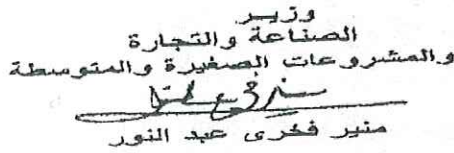 وزيـر
الصناعة والتجارة
والمشروعات الصغيرة والمتوسطة
منير فخرى عبد النور